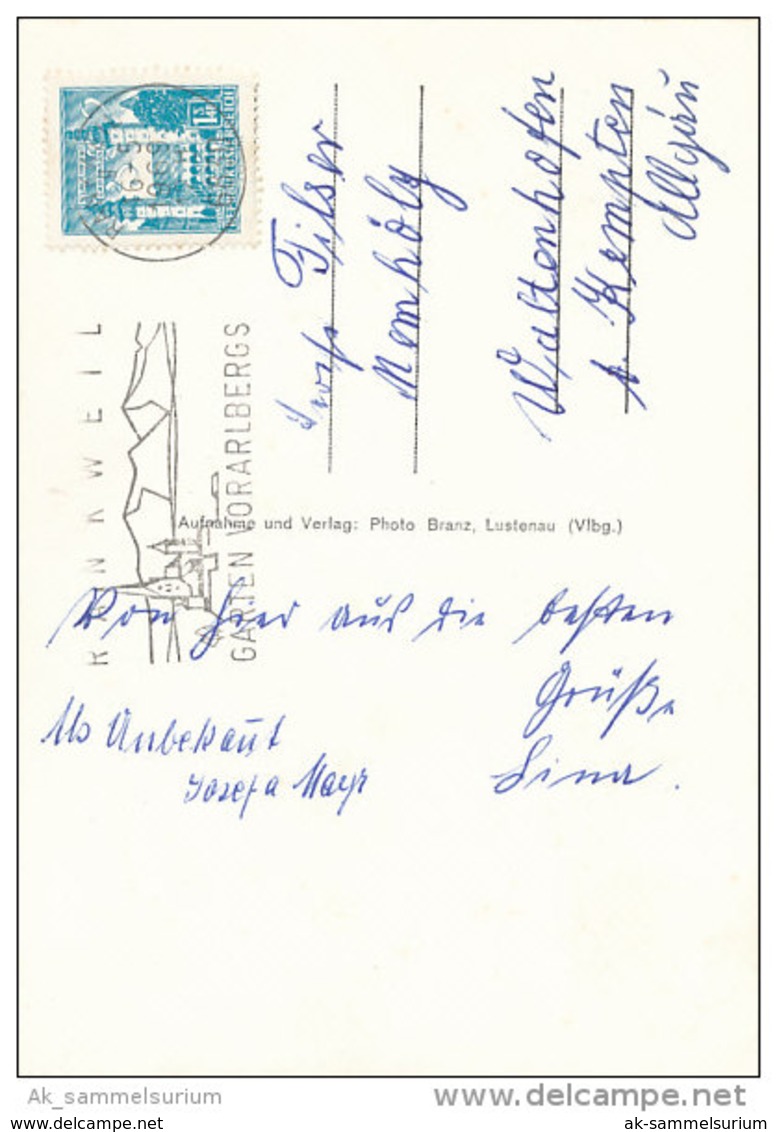 RANKWEIL
GARTEN VORARLBERGS
Tilser
Memhölz
Waltenhofen
b. Kempten
Allgäu
Aufnahme und Verlag: Photo Branz, Lustenau (Vlbg.)
Von hier aus die besten
Grüße
Lina.
Als Unbekaňt
Josefa Mayr
Ak_sammelsurium
www.delcampe.net
www.delcampe.net
ak-sammelsurium